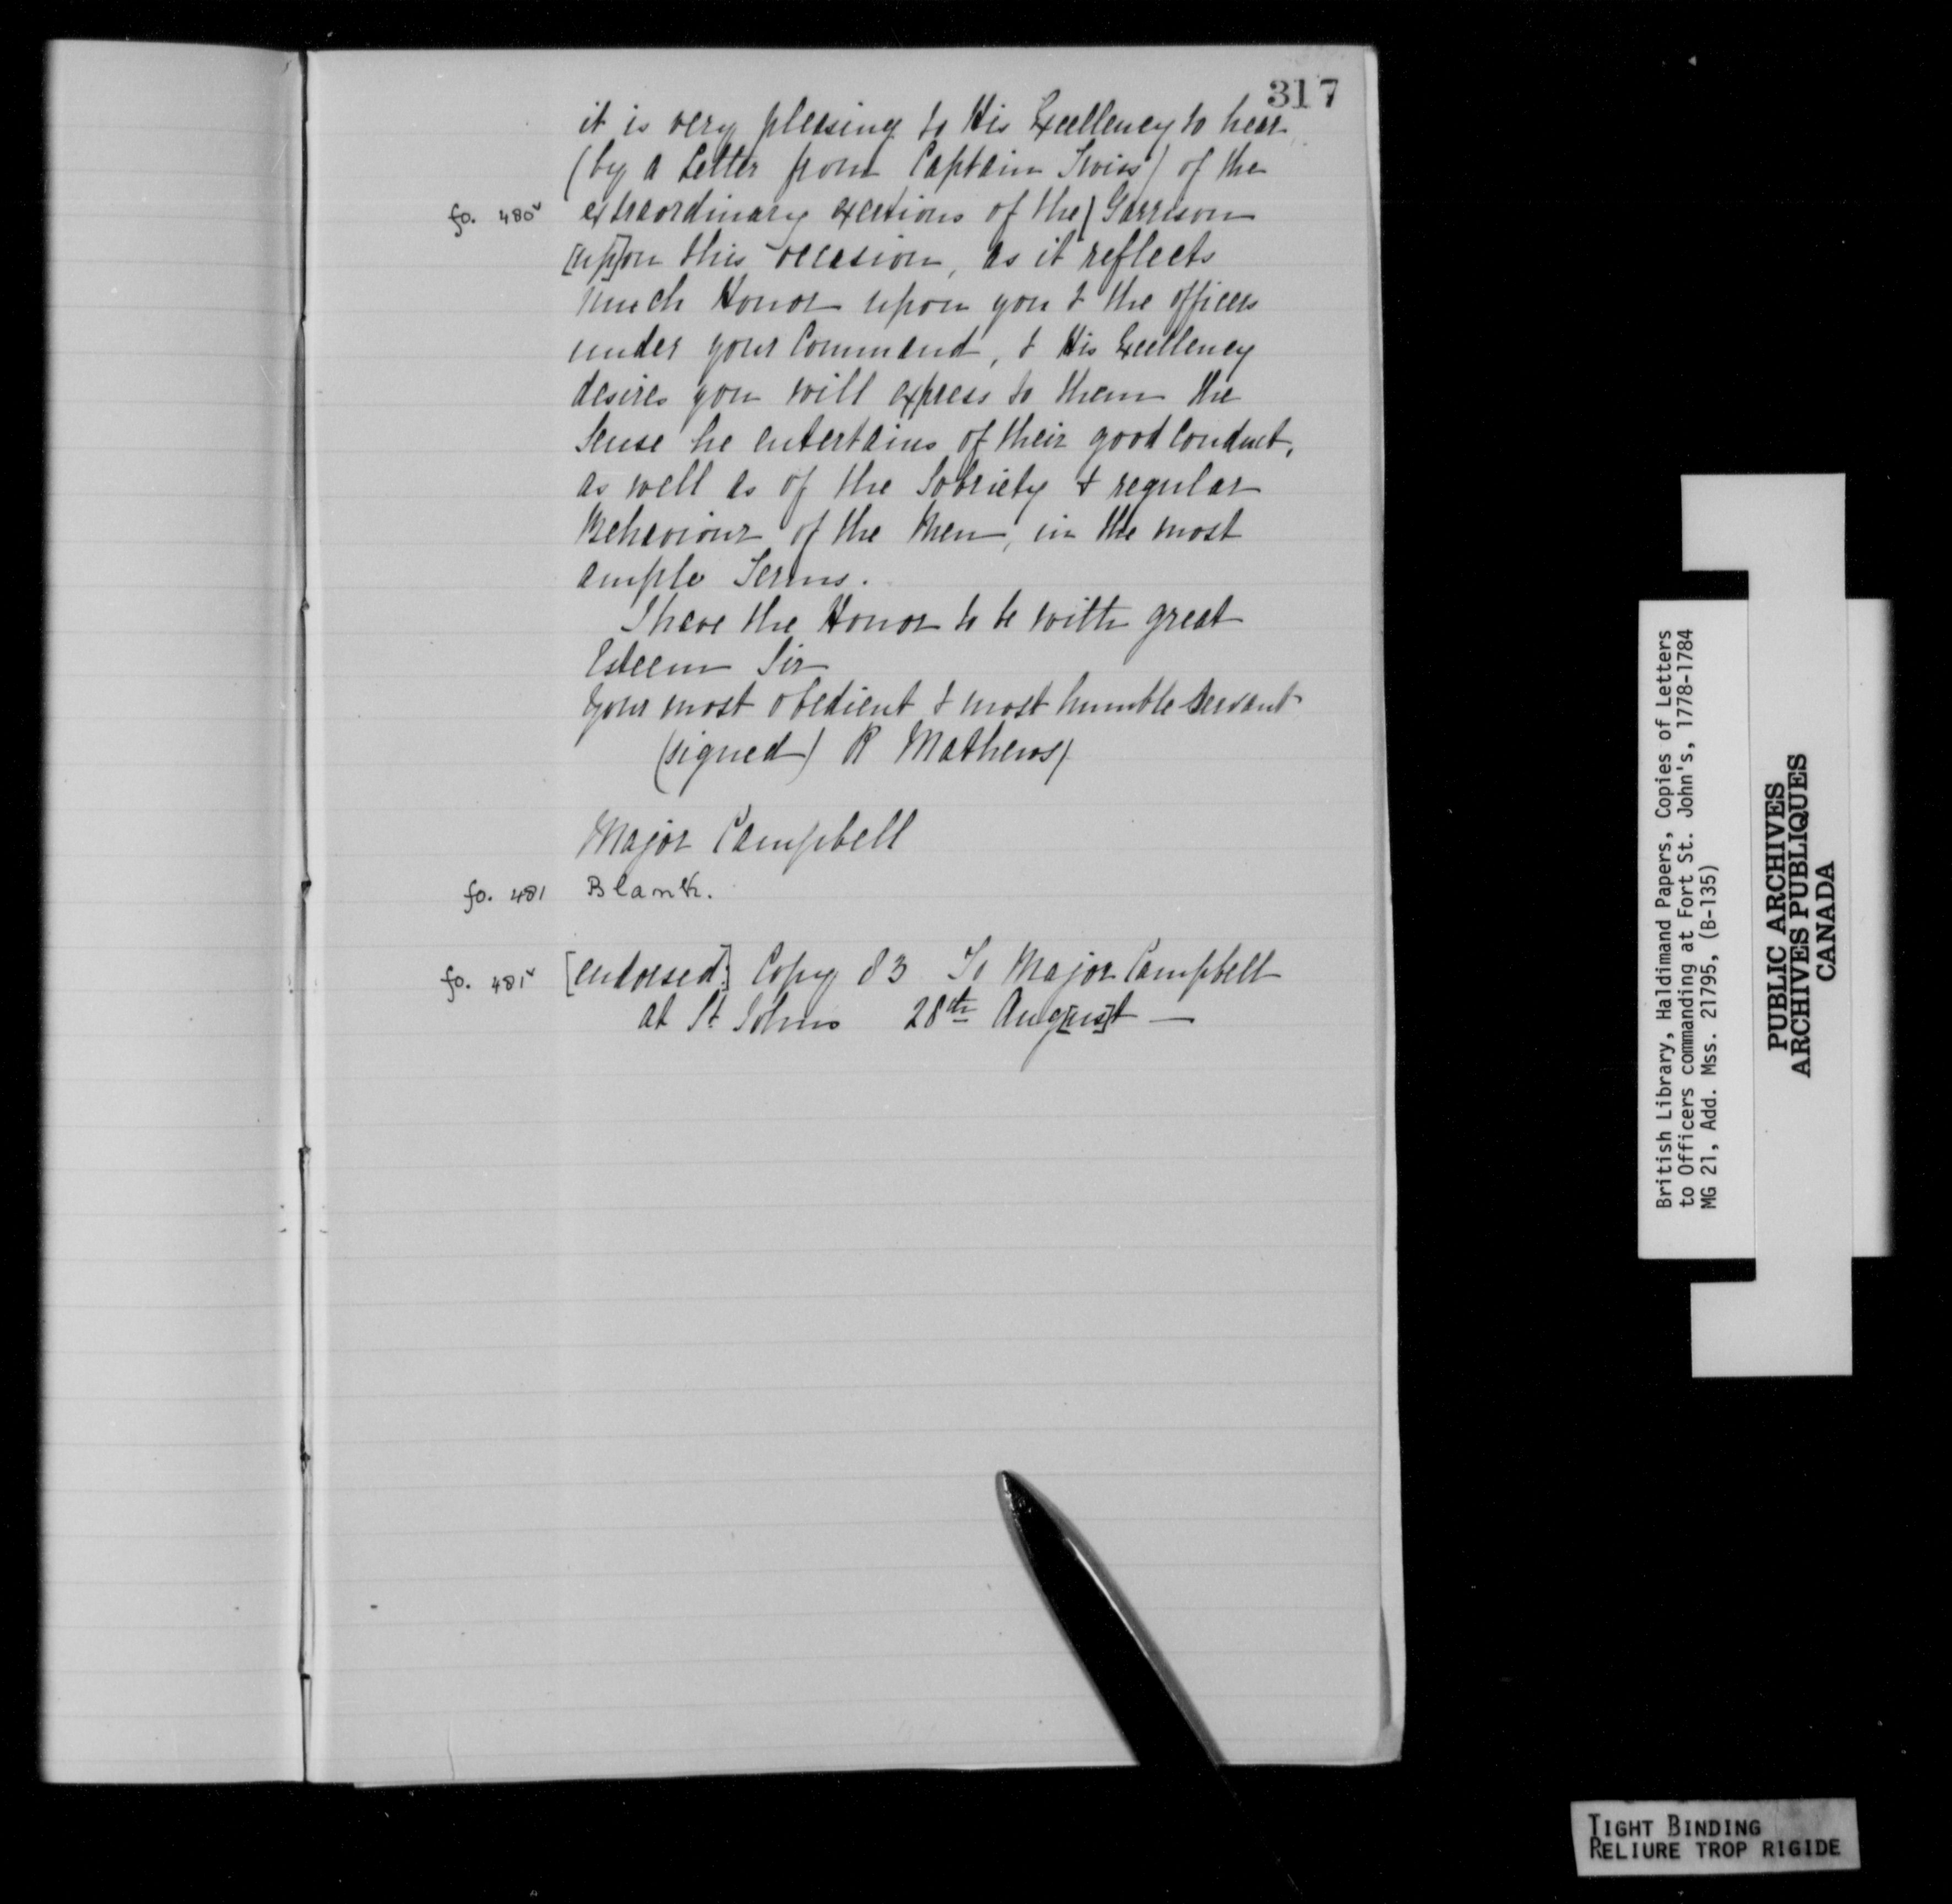 317
it is very pleasing to His Excellency to hear
(by a Letter from Captain Twiss) of the
fo. 480v extraordinary exertions of the| Garrison
[up]on this occasion, as it reflects
much Honor upon you & the officers
under your Command, & His Excellency
desires you will express to them the
Sense he entertains of their good Conduct,
as well as of the Sobriety & regular
Behaviour of the Men, in the most
ample Terms.
I have the Honor to be with great
Esteem Sir
your most obedient & most humble Servant
(signed) R Mathews/
Major Campbell
fo. 481 Blank.
fo. 481v [endorsed:] Copy 83 To Major Campbell
at St Johns 28th Aug[us]t —
British Library, Haldimand Papers, Copies of Letters
to Officers commanding at Fort St. John's, 1778-1784
MG 21, Add. Mss. 21795, (B-135)
PUBLIC ARCHIVES
ARCHIVES PUBLIQUES
CANADA
TIGHT BINDING
RELIURE TROP RIGIDE